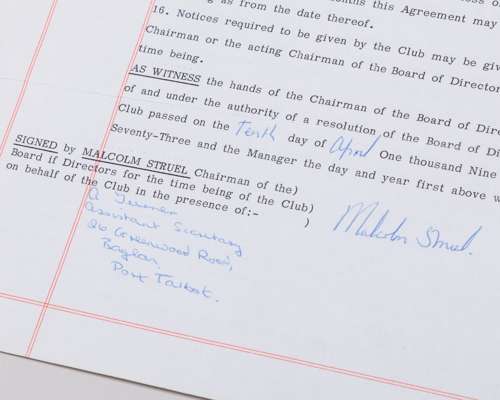 nths this Agreement may
ing as from the date thereof.
16. Notices required to be given by the Club may be give
Chairman or the acting Chairman of the Board of Director
time being.
AS WITNESS the hands of the Chairman of the Board of Dire
of and under the authority of a resolution of the Board of Di
Club passed on the Tenth day of April One thousand Nine
Seventy-Three and the Manager the day and year first above w
SIGNED by MALCOLM STRUEL Chairman of the)
Board if Directors for the time being of the Club)
on behalf of the Club in the presence of:- )
Malcolm Struel.
A
Assistant Secretary
26 Greenwood Road,
Baglan,
Port Talbot.